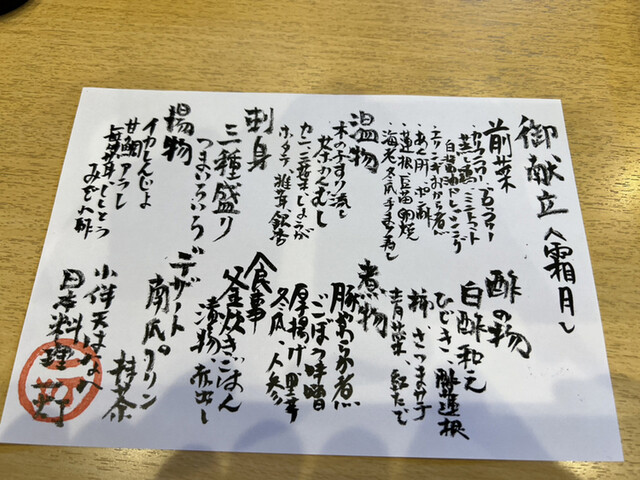 御献立〈霜月〉
前菜
カリフラワー ブロッコリー
蒸し鶏 ミニトマト
白醤油ドレッシング
エリンギおから煮
あん肝 ポン酢
蓮根豆苗卵焼
海老 冬瓜
温物
木の子すり流し
茶わんむし
カニ 三つ葉 しょうが
ホタテ 椎茸 銀杏
刺身
三種盛り
つまいろいろ
揚物
イカしんじょ
甘鯛アラレ
みぞれ酢
酢の物
白酢和え
ひじき 酢蓮根
柿 さつま芋
青菜 紅たで
煮物
豚やわらか煮
ごぼう味噌
厚揚げ 里芋
冬瓜 人参
食事
釜炊きごはん
漬物 赤出し
デザート
南瓜プリン
抹茶
日本料理